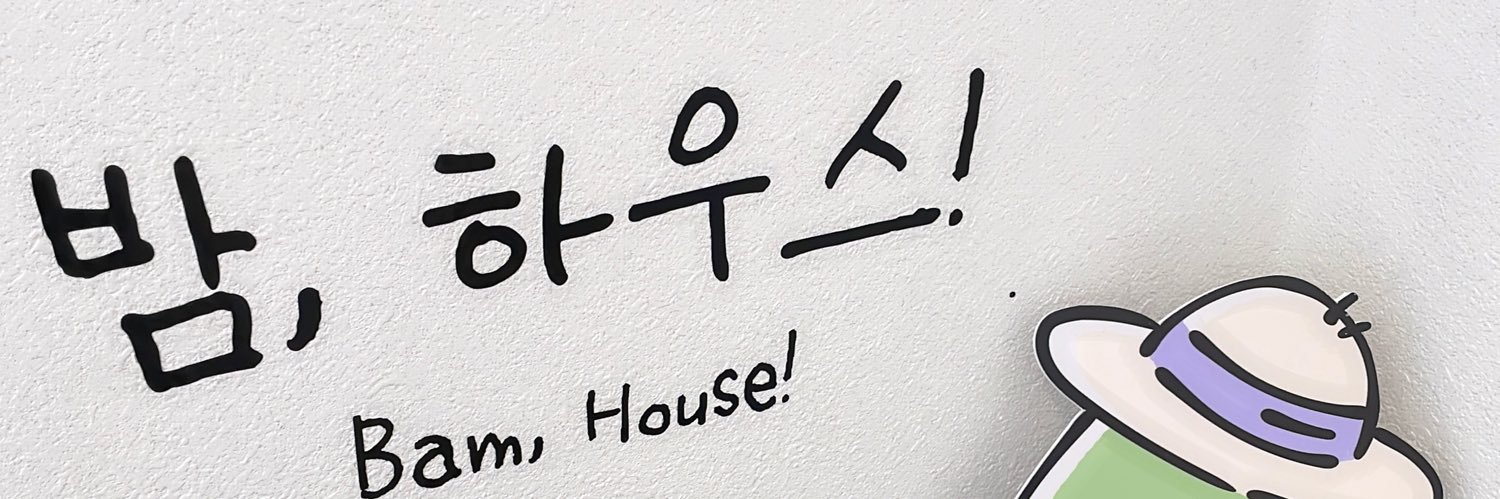 밤, 하우스!
Bam, House!